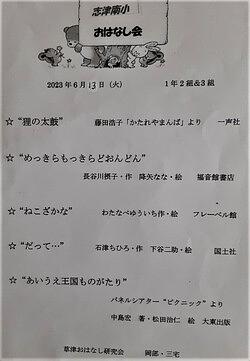 志津南小
おはなし会
2023年6月13日(火) 1年2組&3組
☆ “狸の太鼓” 藤田浩子「かたれやまんば」より 一声社
☆ “めっきらもっきらどおんどん”
長谷川摂子・作 降矢なな・絵 福音館書店
☆ “ねこざかな” わたなべゆういち作・絵 フレーベル館
☆ “だって…” 石津ちひろ・作 下谷二助・絵 国土社
☆ “あいうえ王国ものがたり”
パネルシアター“ピクニック”より
中島宏 著・松田治仁 絵 大東出版
草津おはなし研究会 岡部・三宅